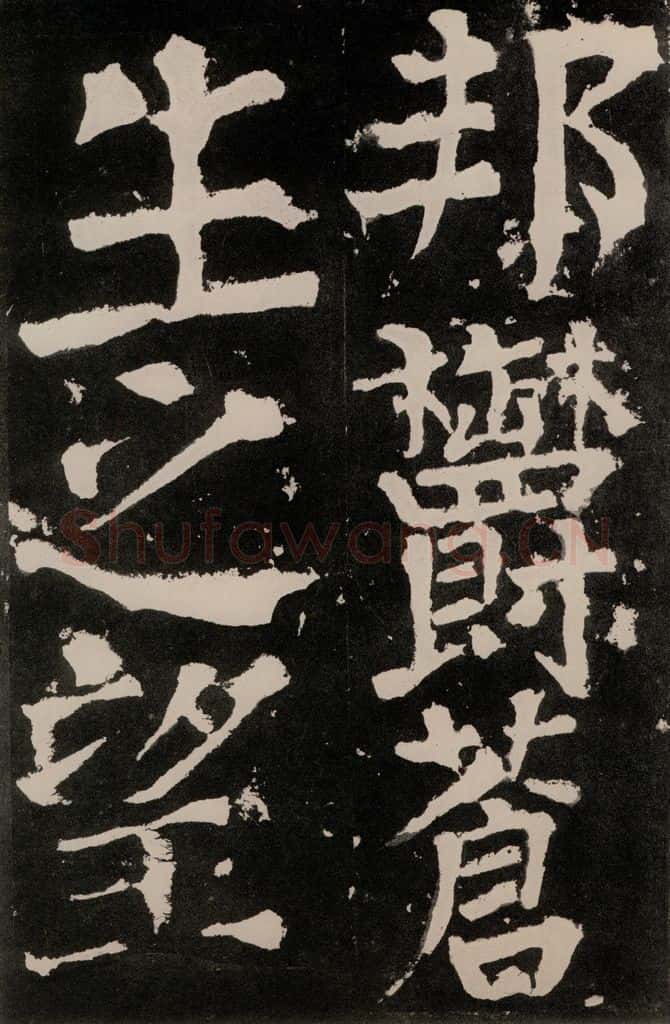 邦欝蒼
生之望
Shufawang.CN